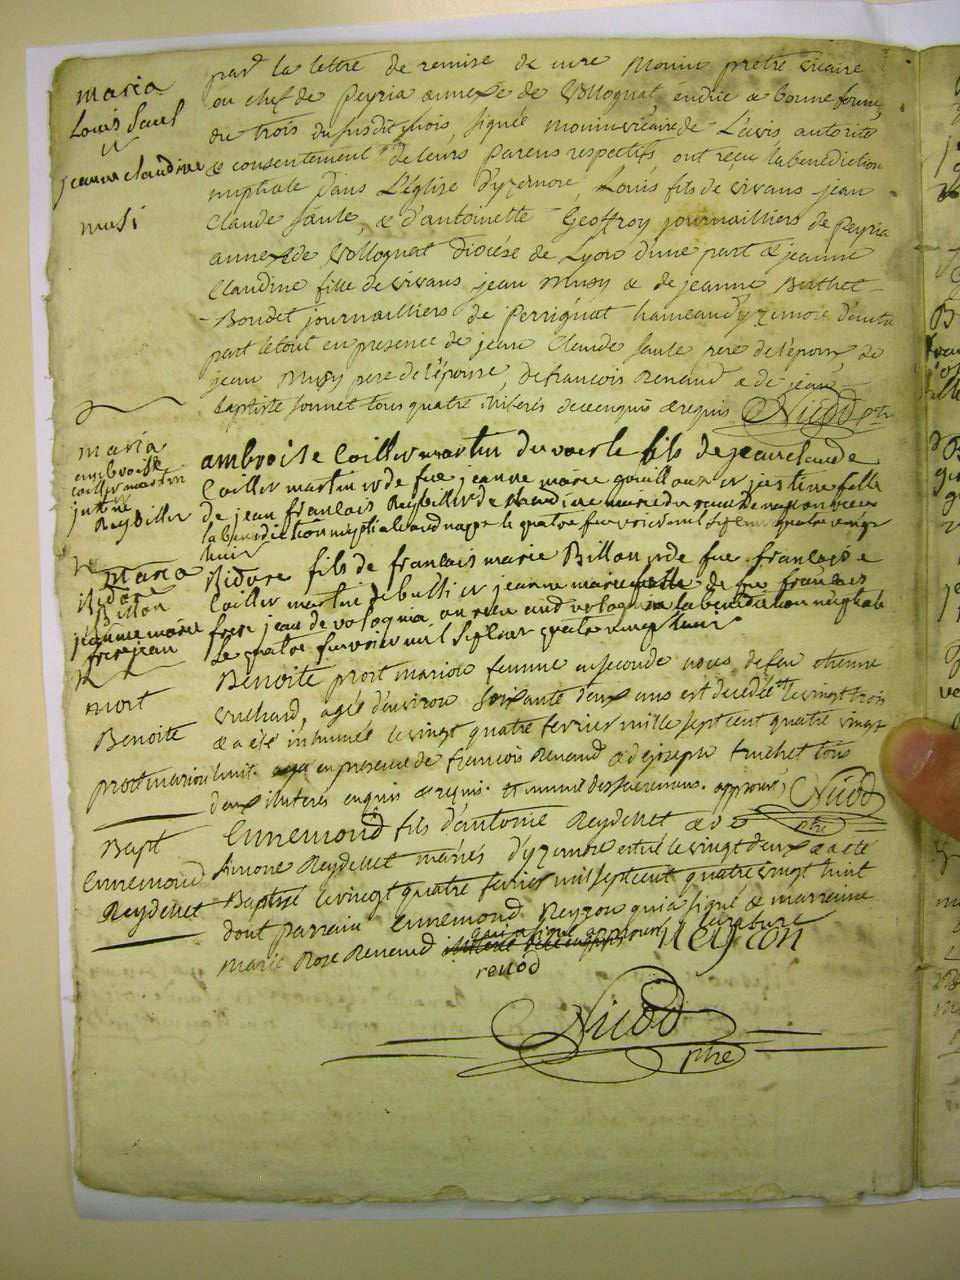 maria
Louis Saul
&
jeanne claudine
musi
par la lettre de remise de mre Monin pretre vicaire
ou chef de Peyria annexe de Vollognat, endüe & bonne forme,
du trois du susdit mois, signée monin vicaire de L'avis autorité
& consentement de leurs parens respectifs, ont reçu la benediction
nuptiale dans L'église d'yzernore, Louis fils de vivans jean
Claude Saule, & d'antoinette Geoffroy journailliers de Peyria
annexe de Vollognat Diocése de Lyon d'une part & jeanne
Claudine fille de vivans jean Musy & de jeanne Berthet-
-Boudet journailliers de Perrignat hameau d'yzernore d'autre
part le tout en presence de jean Claude Saule pere de l'époux, de
jean Musy pere de l'épouse, de francois Renaud & de jean
baptiste sonnet tous quatre illiterés de ce enquis & requis. Nicod ptre
maria
ambroise
cailler martin
justine
Reybiller
ambroise Cailler martin du voerle fils de jean claude
Cailler martin & de fue jeanne marie gouilloux & justine fille
de jean francois Reybiller de
la benediction nuptiale aud nappt le quatre fevrier mil sept cent quatre vingt
huit
maria
Isidore
Billon
jeanne marie
frere jean
Isidore fils de francois marie Billon & de fue francoise
Cailler martin de bulli & jeanne marie fille de fue francois
frere jean de vologna ont recu aud vologna la benediction nuptiale
Le quatre fevrier mil sept cent quatre vingt huit
mort
Benoite
prost marion
Benoite prost marion femme en seconde noces de feu etienne
truchard, agée d'environ soixante deux ans est decedée le vingt trois
& a été inhumée le vingt quatre fevrier mille sept cent quatre vingt
huit. en presence de francois Renaud & de joseph truchet tous
deux illiterés enquis & requis. & munie des sacremens. approuvé Nicod
ptre
Bapt
Ennemond
Reydellet
Ennemond fils d'antoine Reydellet & de
Simone Reydellet mariés d'yzernore est né le vingt deux & a été
Baptisé le vingt quatre fevrier mil sept cent quatre vingt huit
dont parrain Ennemond Reyzon qui a signé & marraine
Marie Rose Renaud qui a signé approuvé la rature
renod Neyron
Nicod
ptre